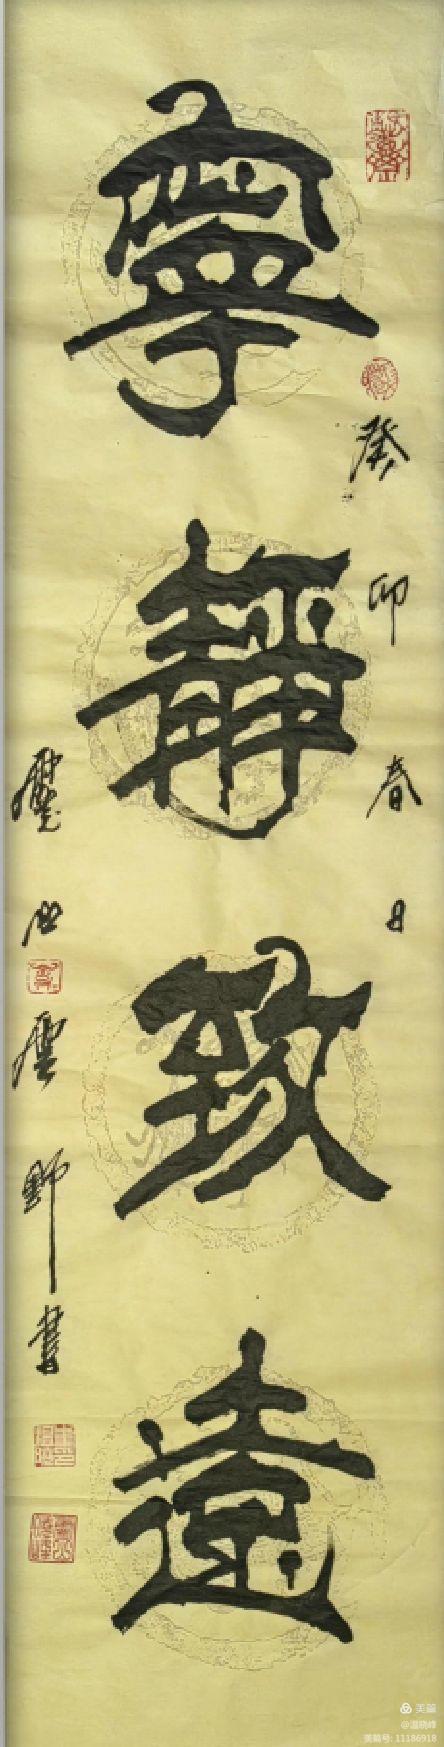 癸卯春日
寧静致遠
雲野書
美篇
@温晓峰
美篇号: 11186918